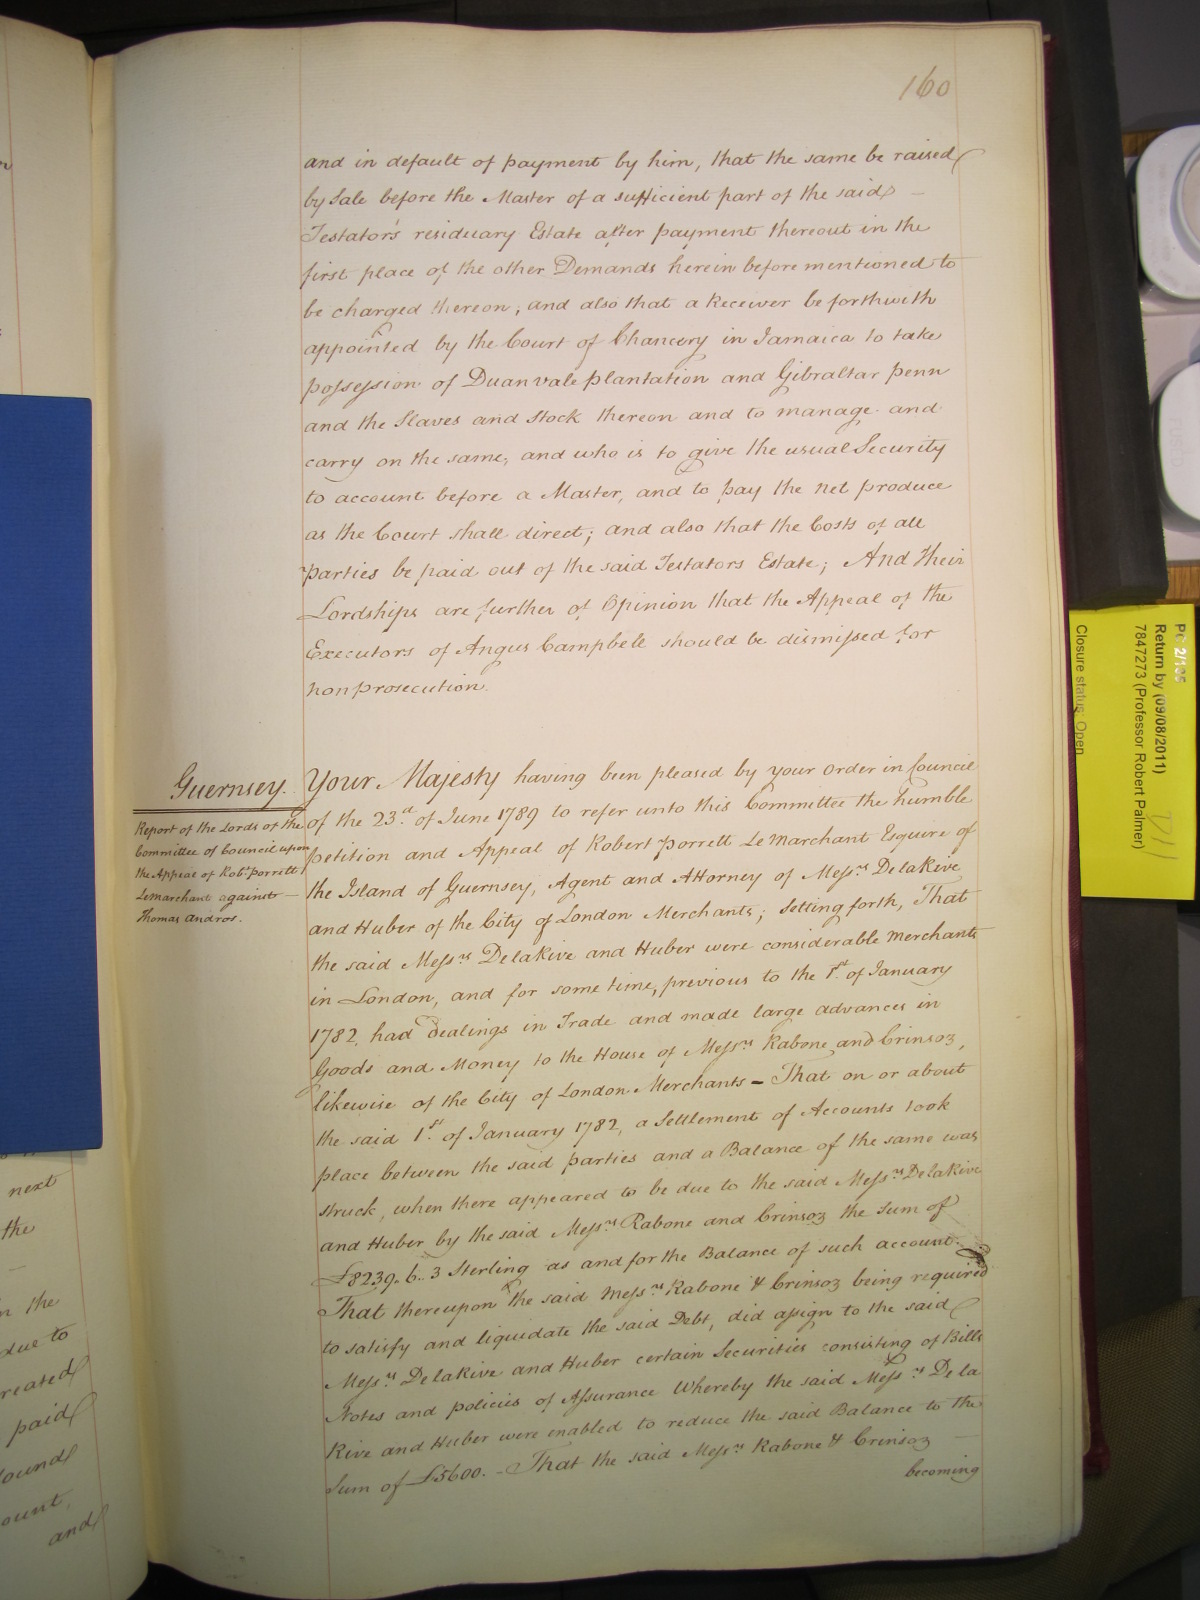 160
and in default of payment by him, that the same be raised
by Sale before the Master of a sufficient part of the said —
Testator's residuary Estate after payment thereout in the
first place of the other Demands herein before mentioned to
be charged thereon, and also that a Receiver be forthwith
appointed by the Court of Chancery in Jamaica to take
possession of Duanvale plantation and Gibraltar penn
and the Slaves and Stock thereon and to manage and
carry on the same, and who is to give the usual Security
to account before a Master, and to pay the net produce
as the Court shall direct; and also that the Costs of all
parties be paid out of the said Testators Estate; And Their
Lordships are further of Opinion that the Appeal of the
Executors of Angus Campbell should be dismissed for
non prosecution.
Guernsey.
Report of the Lords of the
Committee of Council upon
the Appeal of Robt. porrett
Lemarchant against —
Thomas Andros.
Your Majesty having been pleased by your Order in Council
of the 23d. of June 1789 to refer unto this Committee the humble
petition and Appeal of Robert porrett Le Marchant Esquire of
the Island of Guernsey, Agent and Attorney of Messrs. DelaRive
and Huber of the City of London Merchants; Setting forth, That
the said Messrs. DelaRive and Huber were considerable Merchants
in London, and for some time, previous to the 1st. of January
1782, had Dealings in Trade and made large advances in
Goods and Money to the House of Messrs. Rabone and Crinsoz,
likewise of the City of London Merchants – That on or about
the said 1st. of January 1782, a Settlement of Accounts took
place between the said parties and a Balance of the same was
struck, when there appeared to be due to the said Messrs. DelaRive
and Huber by the said Messrs. Rabone and Crinsoz the Sum of
£8239. 6.. 3 Sterling as and for the Balance of such account.
That thereupon the said Messrs. Rabone & Crinsoz being required
to satisfy and liquidate the said Debt, did assign to the said
Messrs. DelaRive and Huber certain Securities consisting of Bills
Notes and policies of Assurance Whereby the said Messrs. De la
Rive and Huber were enabled to reduce the said Balance to the
Sum of £5600. – That the said Messrs. Rabone & Crinsoz —
becoming
next
the
in the
due to
reated
paid
ound
ount,
and
PC 2/135
Return by (09/08/2011)
7847273 (Professor Robert Palmer)
Closure status: Open